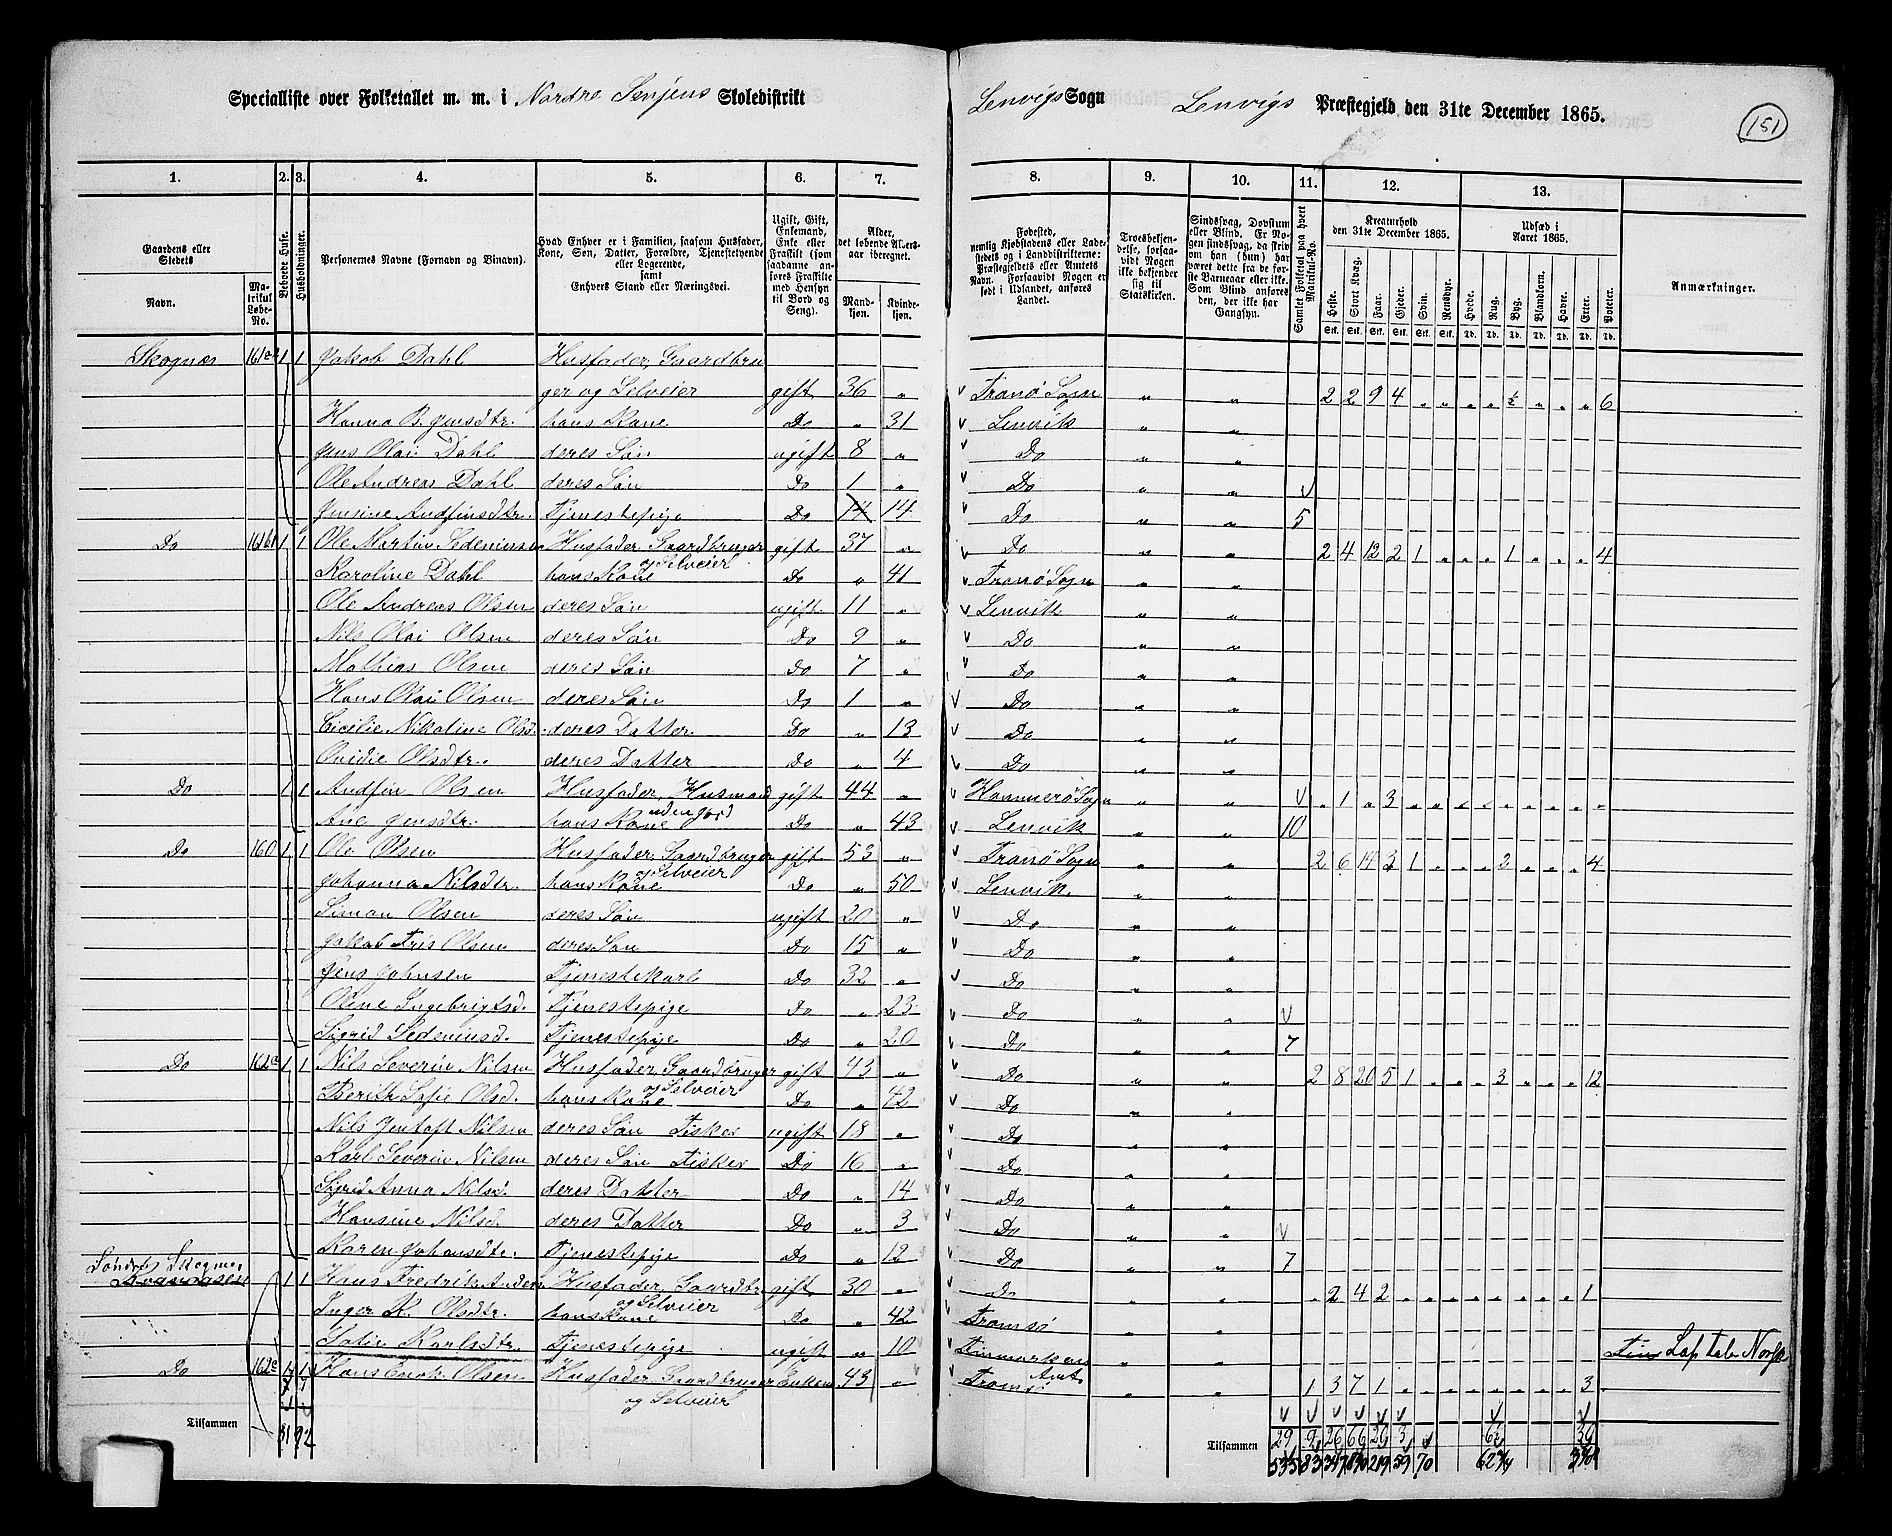 Specialliste over Folketallet m. m. i Nordre Senjens Skoledistrikt Lenvigs Sogn Lenvigs Præstegjeld den 31te December 1865.
151
1. 2. 3. 4. 5. 6. 7. 8. 9. 10. 11. 12. 13.
Gaardens eller Stedets
Navn.
Matrikul Løbe-No.
Beboede Huse.
Husholdninger.
Personernes Navne (Fornavn og Binavn).
Hvad Enhver er i Familien, saasom Husfader, Kone, Søn, Datter, Forældre, Tjenestetyende eller Logerende, samt Enhvers Stand eller Næringsvei.
Ugift, Gift, Enkemand, Enke eller Fraskilt (som saadanne anføres Fraskilte med Hensyn til Bord og Seng).
Alder, det løbende Aldersaar iberegnet.
Mandkjøn. Kvindekjøn.
Fødested, nemlig Kjøbstadens eller Ladestedets og i Landdistrikterne: Præstegjeldets eller Amtets Navn. Forsaavidt Nogen er født i Udlandet, anføres Landet.
Troesbekjendelse, forsaavidt Nogen ikke bekjender sig til Statskirken.
Sindssvag, Døvstum eller Blind. Er Nogen sindssvag, da skrives om han (hun) har været dette fra de første Barneaar eller ikke. Som Blind anføres den, der ikke har Gangsyn.
Samlet Folketal paa hvert Matrikul-No.
Kreaturhold den 31te December 1865.
Heste. Stort Kvæg. Faar. Gjeder. Svin. Rensdyr.
Udsæd i Aaret 1865.
Hvede. Rug. Byg. Blandkorn. Havre. Erter. Poteter.
Anmærkninger.
Skognæs 161a 1 1 Jakob Dahl Husfader, Gaardbru
ger og Selveier gift 36 " Tranø Sogn " " 2 2 9 4 " " " " ½ " " " 6
Hanna B. Jensdtr. hans Kone Do " 31 Lenvik " "
Jens Olai Dahl deres Søn ugift 8 " Do " "
Ole Andreas Dahl deres Søn Do 1 " Do " "
Jensine Andfinsdtr. Tjenestepige Do 14 14 Do " " 5
Do 161b 1 1 Ole Martin Husfader, Gaardbruger gift 37 " Do " " 2 4 12 2 1 " " " 1 " " " 4
og Selveier
Karoline Dahl hans Kone Do " 41 Tranø Sogn " "
Ole Andreas Olsen deres Søn ugift 11 " Lenvik " "
Nils Olai Olsen deres Søn Do 9 " Do " "
Mathias Olsen deres Søn Do 7 " Do " "
Hans Olai Olsen deres Søn Do 1 " Do " "
Cicilie Nikoline Olsd. deres Datter Do " 13 Do " "
Ovidie Olsdtr. deres Datter Do " 4 Do " "
Do 1 1 Andfin Olsen Husfader, Husmand gift 44 " Sogn " " " 1 " 3 " " " " " " " " "
uden jord
Ane Jensdtr. hans Kone Do " 43 Lenvik " " 10
Do 160 1 1 Ole Olsen Husfader, Gaardbruger gift 53 " Tranø Sogn " " 2 6 14 3 1 " " " 2 " " " 4
og Selveier
Johanna Nilsdtr. hans Kone Do " 50 Lenvik " "
Simon Olsen deres Søn ugift 20 " Do " "
Jakob Olsen deres Søn Do 15 " Do " "
Jens Johnsen Tjenestekarl Do 32 " Do " "
Oline Ingebrigtsd. Tjenestepige Do " 23 Do " "
Sigrid Tjenestepige Do " 20 Do " " 7
Do 162a 1 1 Nils Severin Nilsen Husfader, Gaardbruger gift 43 " Do " " 2 8 20 5 1 " " " 3 " " " 12
og Selveier
Berith Sofie Olsd. hans Kone Do " 42 Do " "
Nils Jentoft Nilsen deres Søn Fisker ugift 18 " Do " "
Karl Severin Nilsen deres Søn Fisker Do 16 " Do " "
Sigrid Anna Nilsd. deres Datter Do " 14 Do " "
Hansine Nilsd. deres Datter Do " 3 Do " "
Karen Johansdtr. Tjenestepige Do " 12 Do " " 7
Søndre Skognæs
1 1 Hans Fredrik Husfader, Gaardbr. gift 30 " Do " " " 2 4 2 " " " " " " " " 1
og Selveier
Inger K. Olsdtr. hans Kone Do " 42 Tromsø " "
Karlsdtr. Tjenestepige ugift " 10 Finmarkens " "
Amt
Do 162c 1 1 Hans Enok Olsen Husfader, Gaardbruger Enkem 43 " Tromsø " 1 3 7 1 " " " " " " " " 3
og Selveier
Tilsammen
Tilsammen 29 9 26 66 29 3